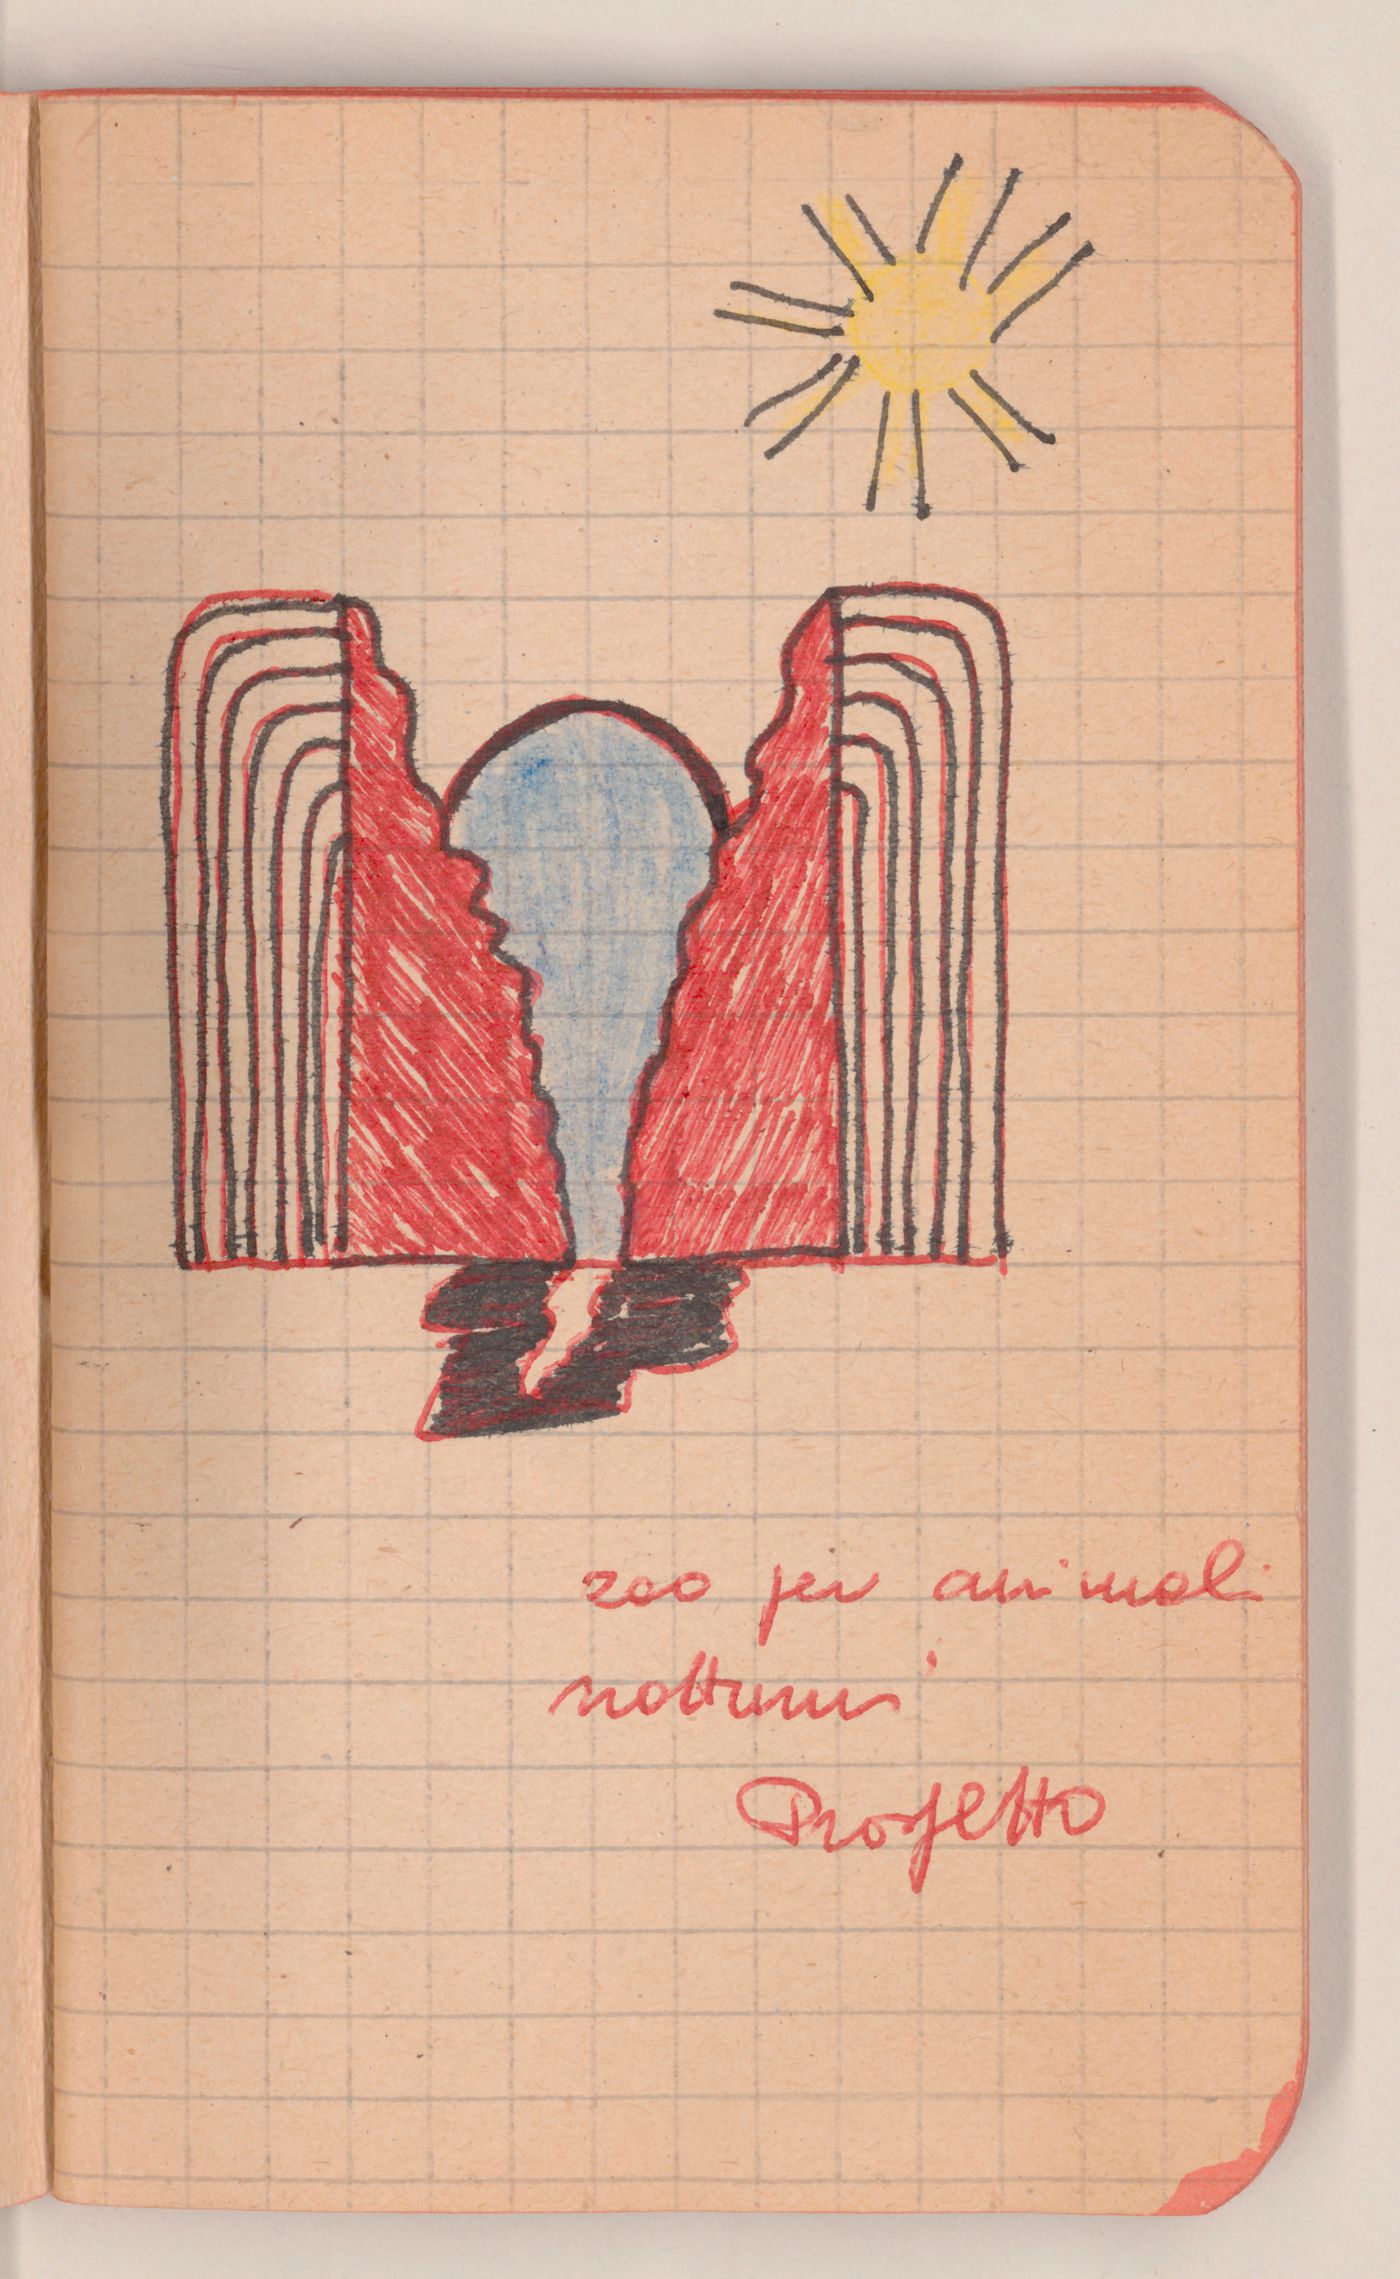 zoo per animali
notturni
Progetto